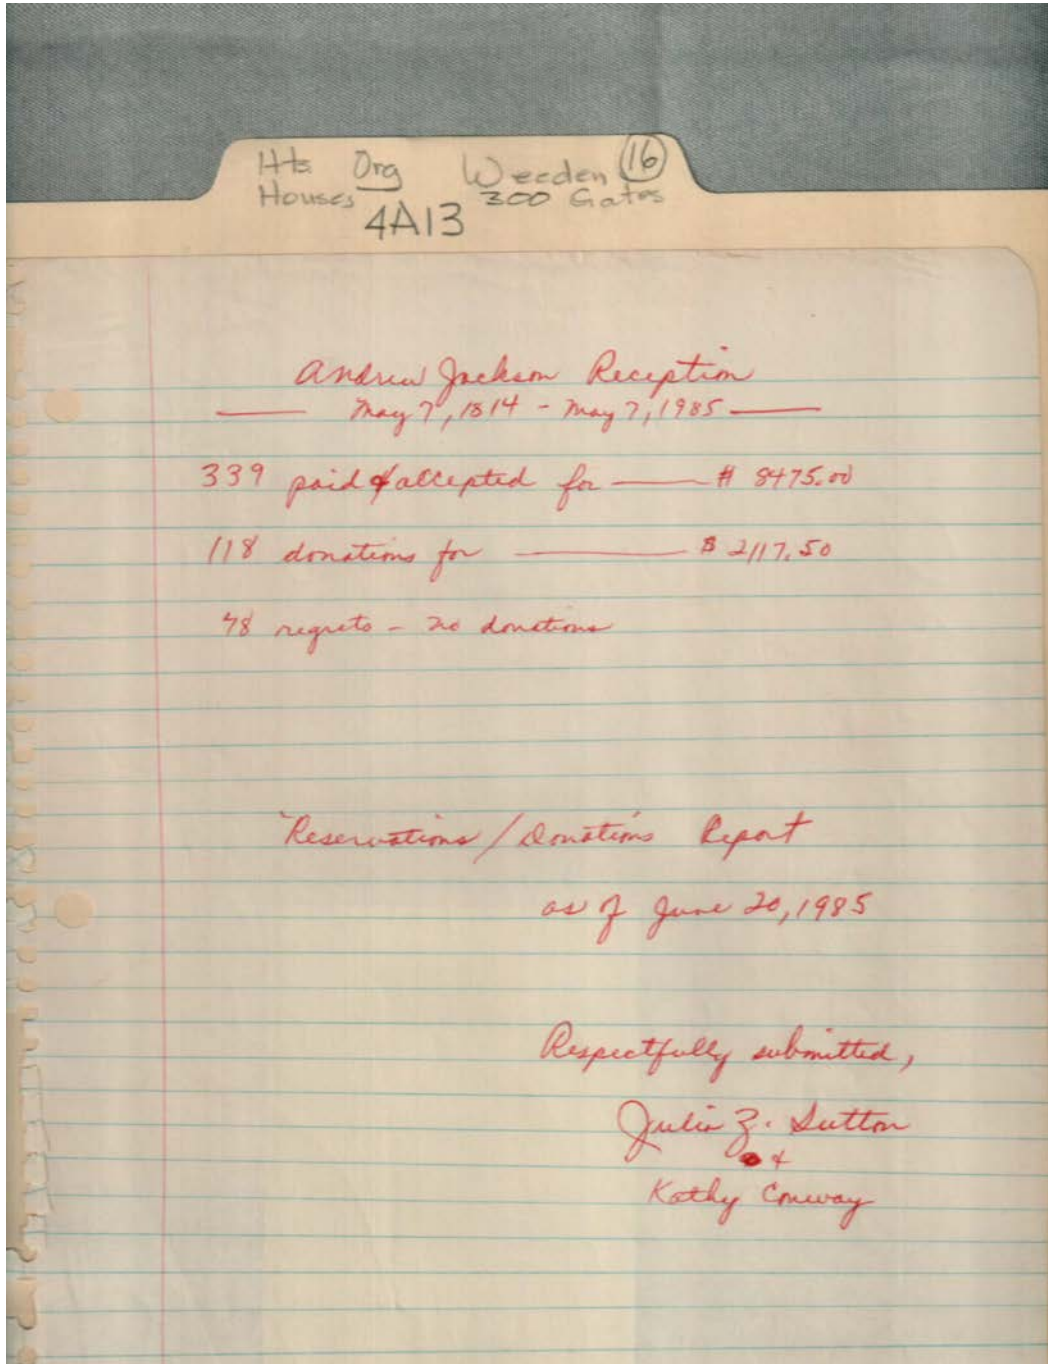 Hts Org Weeden 16
Houses 300 Gates
4A13
Andrew Jackson Reception
May 7, 1814 - May 7, 1985
339 paid & accepted for — $ 8475.00
118 donations for — $ 2117.50
78 regrets - no donations
Reservations / Donations Report
as of June 20, 1985
Respectfully submitted,
Julia Z. Sutton
&
Kathy Conway